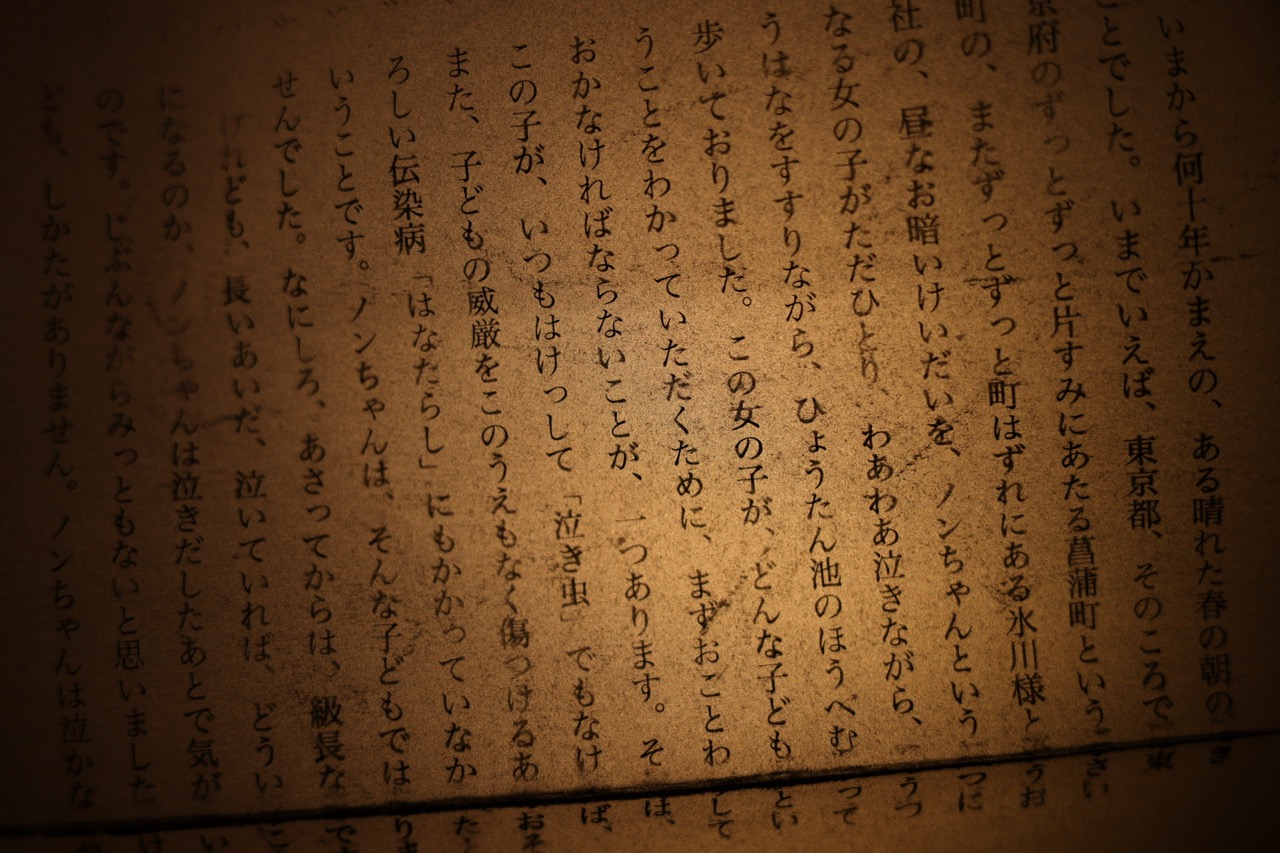 いまから何十年かまえの、ある晴れた春の朝のでき
ことでした。いまでいえば、東京都、そのころで東
京府のずっとずっと片すみにあたる菖蒲町というさい
町の、またずっとずっと町はずれにある氷川様とうお
社の、昼なお暗いけいだいを、ノンちゃんというつに
なる女の子がただひとり、わあわあ泣きながら、うつ
うはなをすすりながら、ひょうたん池のほうへむって
歩いておりました。この女の子が、どんな子どもとい
うことをわかっていただくために、まずおことわして
おかなければならないことが、一つあります。そは、
この子が、いつもはけっして「泣き虫」でもなけば、
また、子どもの威厳をこのうえもなく傷つけるあおそ
ろしい伝染病「はなたらし」にもかかっていなかた
いうことです。ノンちゃんは、そんな子どもではりま
せんでした。なにしろ、あさってからは、級長なで
けれども、長いあいだ、泣いていれば、どういこ
になるのか、ノンちゃんは泣きだしたあとで気がい
のです。じぶんながらみっともないと思いましたけ
ども、しかたがありません。ノンちゃんは泣かな